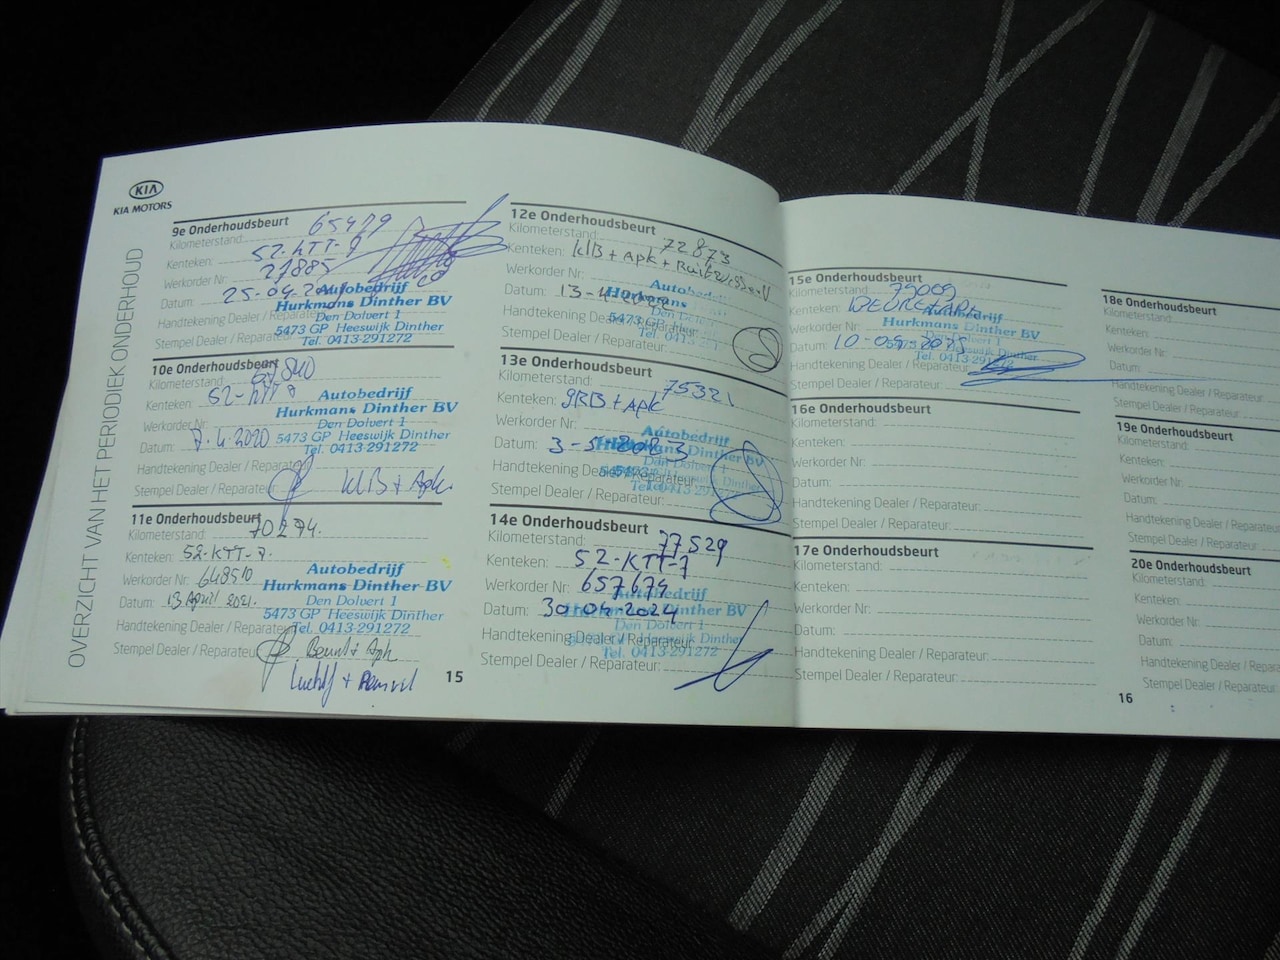 KIA
KIA MOTORS
OVERZICHT VAN HET PERIODIEK ONDERHOUD
9e Onderhoudsbeurt
Kilometerstand: 65479
Kenteken: 52-KTT-7
Werkorder Nr: 27885
Datum: 25-04-
Handtekening Dealer / Reparateur:
Stempel Dealer / Reparateur:
Autobedrijf
Hurkmans Dinther BV
Den Dolvert 1
5473 GP Heeswijk Dinther
Tel. 0413-291272
10e Onderhoudsbeurt
Kilometerstand:
Kenteken: 52-KTT-7
Werkorder Nr:
Datum: 7.4.2020
Handtekening Dealer / Reparateur:
Stempel Dealer / Reparateur: KlB + Apk.
Autobedrijf
Hurkmans Dinther BV
Den Dolvert 1
5473 GP Heeswijk Dinther
Tel. 0413-291272
11e Onderhoudsbeurt
Kilometerstand: 70274.
Kenteken: 52-KTT-7.
Werkorder Nr: 648510
Datum: 13 April 2021.
Handtekening Dealer / Reparateur:
Stempel Dealer / Reparateur: Beurt + Apk
Autobedrijf
Hurkmans Dinther BV
Den Dolvert 1
5473 GP Heeswijk Dinther
Tel. 0413-291272
15
12e Onderhoudsbeurt
Kilometerstand: 72873
Kenteken: KlB + Apk +
Werkorder Nr:
Datum: 13-4-2022
Handtekening Dealer / Reparateur:
Stempel Dealer / Reparateur:
Autobedrijf
Hurkmans
Den Dolvert
5473 GP
Tel. 0413-291
13e Onderhoudsbeurt
Kilometerstand: 75321
Kenteken: gRB + Apk
Werkorder Nr:
Datum: 3-5-2023
Handtekening Dealer / Reparateur:
Stempel Dealer / Reparateur:
Autobedrijf
Hurkmans Dinther BV
Den Dolvert 1
Tel. 0413-291272
14e Onderhoudsbeurt
Kilometerstand: 77529
Kenteken: 52-KTT-7
Werkorder Nr: 657674
Datum: 30-04-2024
Handtekening Dealer / Reparateur:
Stempel Dealer / Reparateur:
Autobedrijf
Hurkmans Dinther BV
Den Dolvert 1
Heeswijk Dinther
Tel. 0413-291272
15e Onderhoudsbeurt
Kilometerstand: 79009
Kenteken:
Werkorder Nr:
Datum: 10-04-2025
Handtekening Dealer / Reparateur:
Stempel Dealer / Reparateur:
Autobedrijf
Hurkmans Dinther BV
Den Dolvert 1
Heeswijk Dinther
Tel. 0413-291272
16e Onderhoudsbeurt
Kilometerstand:
Kenteken:
Werkorder Nr:
Datum:
Handtekening Dealer / Reparateur:
Stempel Dealer / Reparateur:
17e Onderhoudsbeurt
Kilometerstand:
Kenteken:
Werkorder Nr:
Datum:
Handtekening Dealer / Reparateur:
Stempel Dealer / Reparateur:
18e Onderhoudsbeurt
Kilometerstand:
Kenteken:
Werkorder Nr:
Datum:
Handtekening Dealer / Reparateur
Stempel Dealer / Reparateur:
19e Onderhoudsbeurt
Kilometerstand:
Kenteken:
Werkorder Nr:
Datum:
Handtekening Dealer / Repara
Stempel Dealer / Reparateur:
20e Onderhoudsbeurt
Kilometerstand:
Kenteken:
Werkorder Nr:
Datum:
Handtekening Dealer / Repa
Stempel Dealer / Reparateur
16